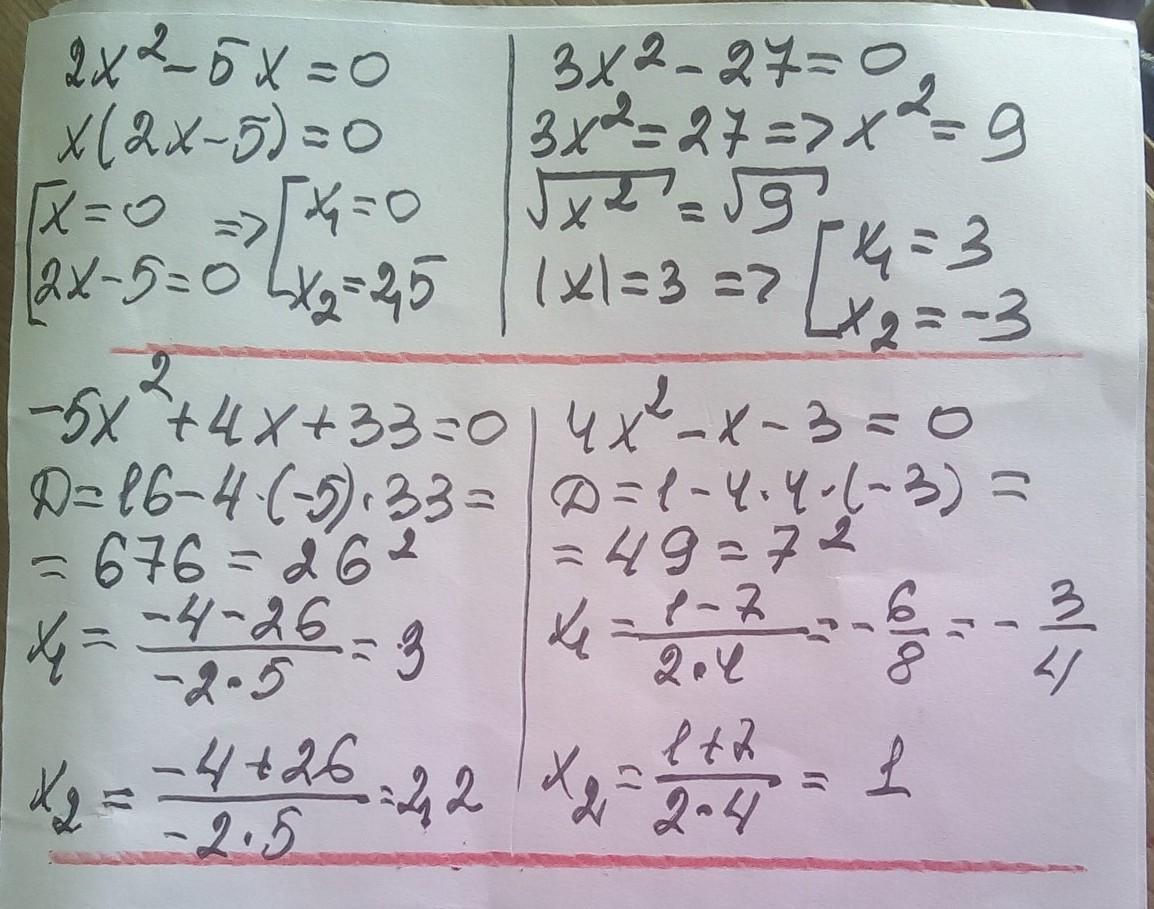 2x² - 5x = 0
x(2x-5) = 0
[x=0 => [x₁=0
[2x-5=0 [x₂=2,5
3x² - 27 = 0
3x² = 27 => x² = 9
√x² = √9
|x| = 3 => [x₁ = 3
[x₂ = -3
-5x² + 4x + 33 = 0
D = 16 - 4·(-5)·33 =
= 676 = 26²
x₁ = (-4-26)/(-2·5) = 3
x₂ = (-4+26)/(-2·5) = 2,2
4x² - x - 3 = 0
D = 1 - 4·4·(-3) =
= 49 = 7²
x₁ = (1-7)/(2·4) = -6/8 = -3/4
x₂ = (1+7)/(2·4) = 1